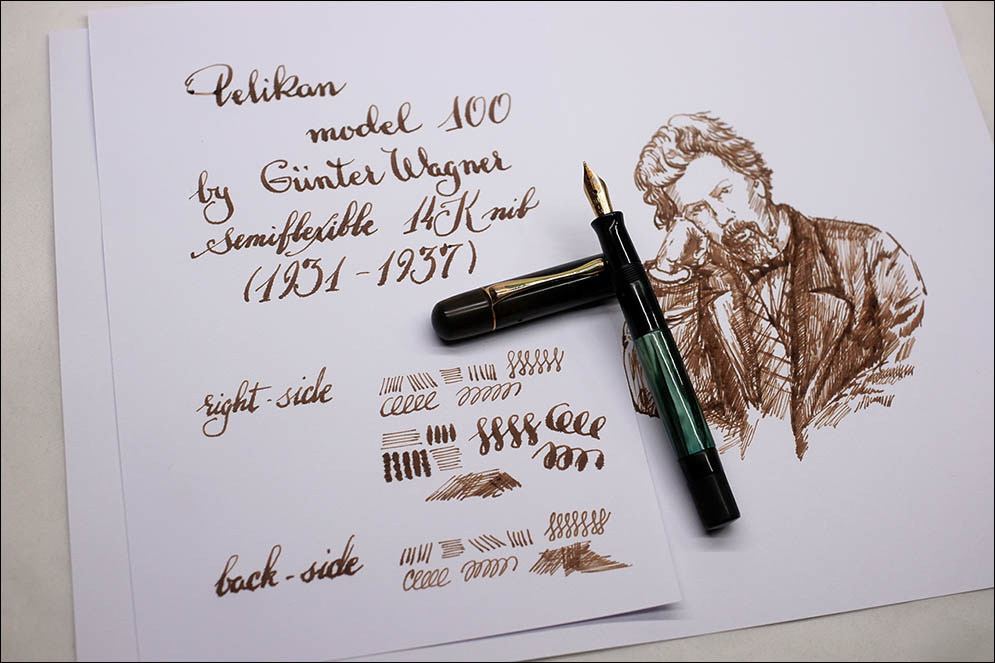 Pelikan
model 100
by Günter Wagner
semiflexible 14K nib
(1931-1937)
right-side
back-side